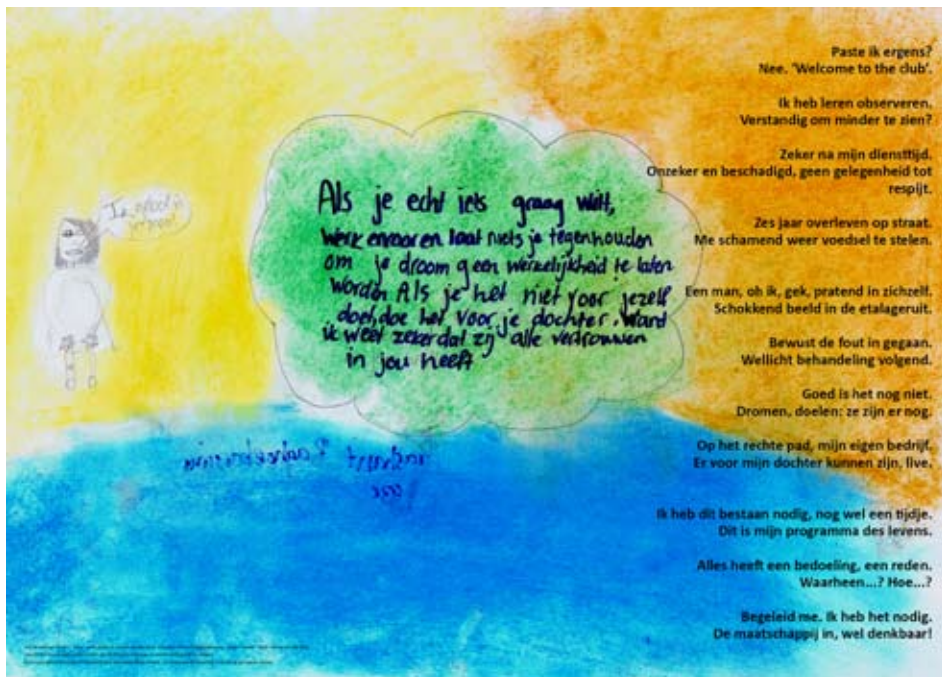 Als je echt iets graag wilt,
werk ervoor en laat niets je tegenhouden
om je droom geen werkelijkheid te laten
worden Als je het niet voor jezelf
doet, doe het voor je dochter. Want
ik weet zeker dat zij alle vertrouwen
in jou heeft
Paste ik ergens?
Nee. 'Welcome to the club'.
Ik heb leren observeren.
Verstandig om minder te zien?
Zeker na mijn diensttijd.
Onzeker en beschadigd, geen gelegenheid tot
respijt.
Zes jaar overleven op straat.
Me schamend weer voedsel te stelen.
Een man, oh ik, gek, pratend in zichzelf.
Schokkend beeld in de etalageruit.
Bewust de fout in gegaan.
Wellicht behandeling volgend.
Goed is het nog niet.
Dromen, doelen: ze zijn er nog.
Op het rechte pad, mijn eigen bedrijf.
Er voor mijn dochter kunnen zijn, live.
Ik heb dit bestaan nodig, nog wel een tijdje.
Dit is mijn programma des levens.
Alles heeft een bedoeling, een reden.
Waarheen...? Hoe...?
Begeleid me. Ik heb het nodig.
De maatschappij in, wel denkbaar!